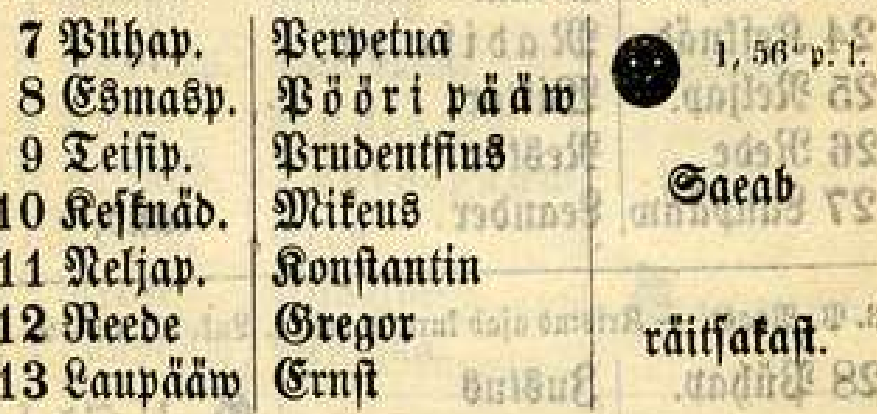 7 Pühap. Perpetua 1, 56 p. l.
8 Esmasp. Pööri pääw
9 Teisip. Prudentsius
10 Kesknäd. Mikeus Saeab
11 Neljap. Konstantin
12 Reede Gregor räitsakast.
13 Laupääw Ernst